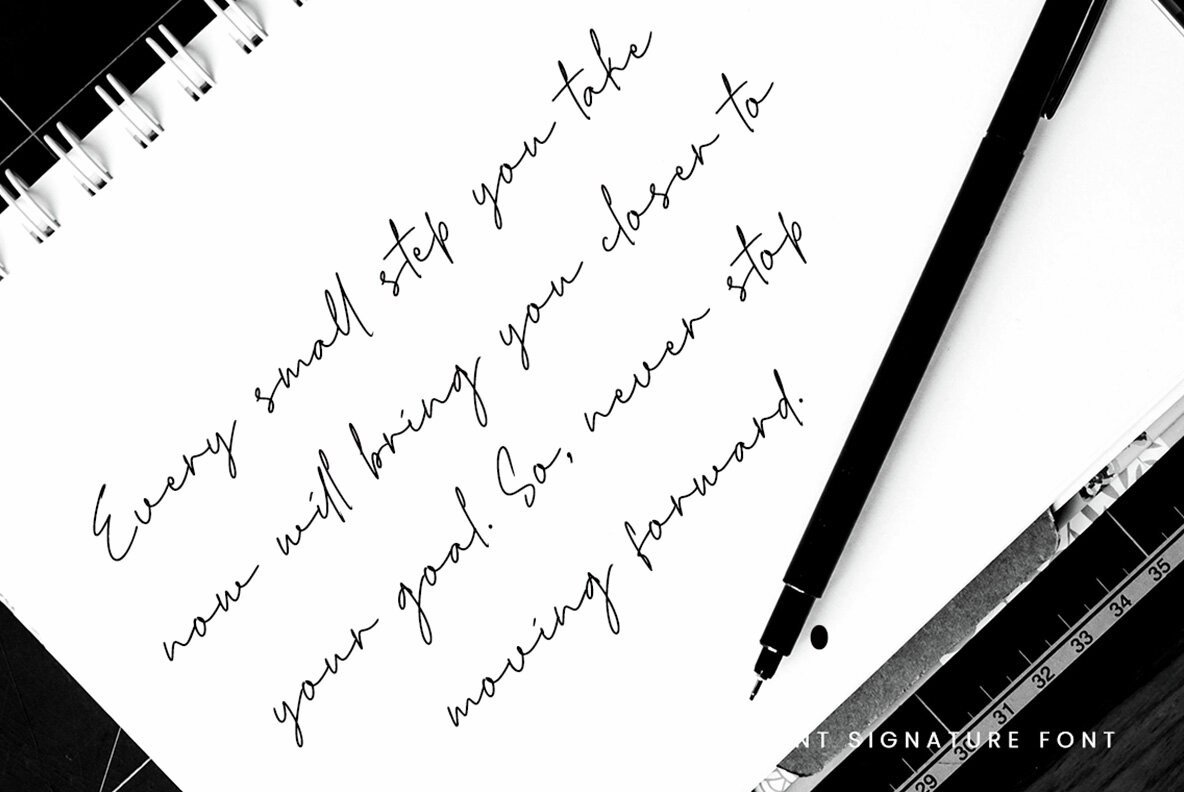 Every small step you take
now will bring you closer to
your goal. So, never stop
moving forward.
35
34
33
32
31
30
29
SIGNATURE FONT